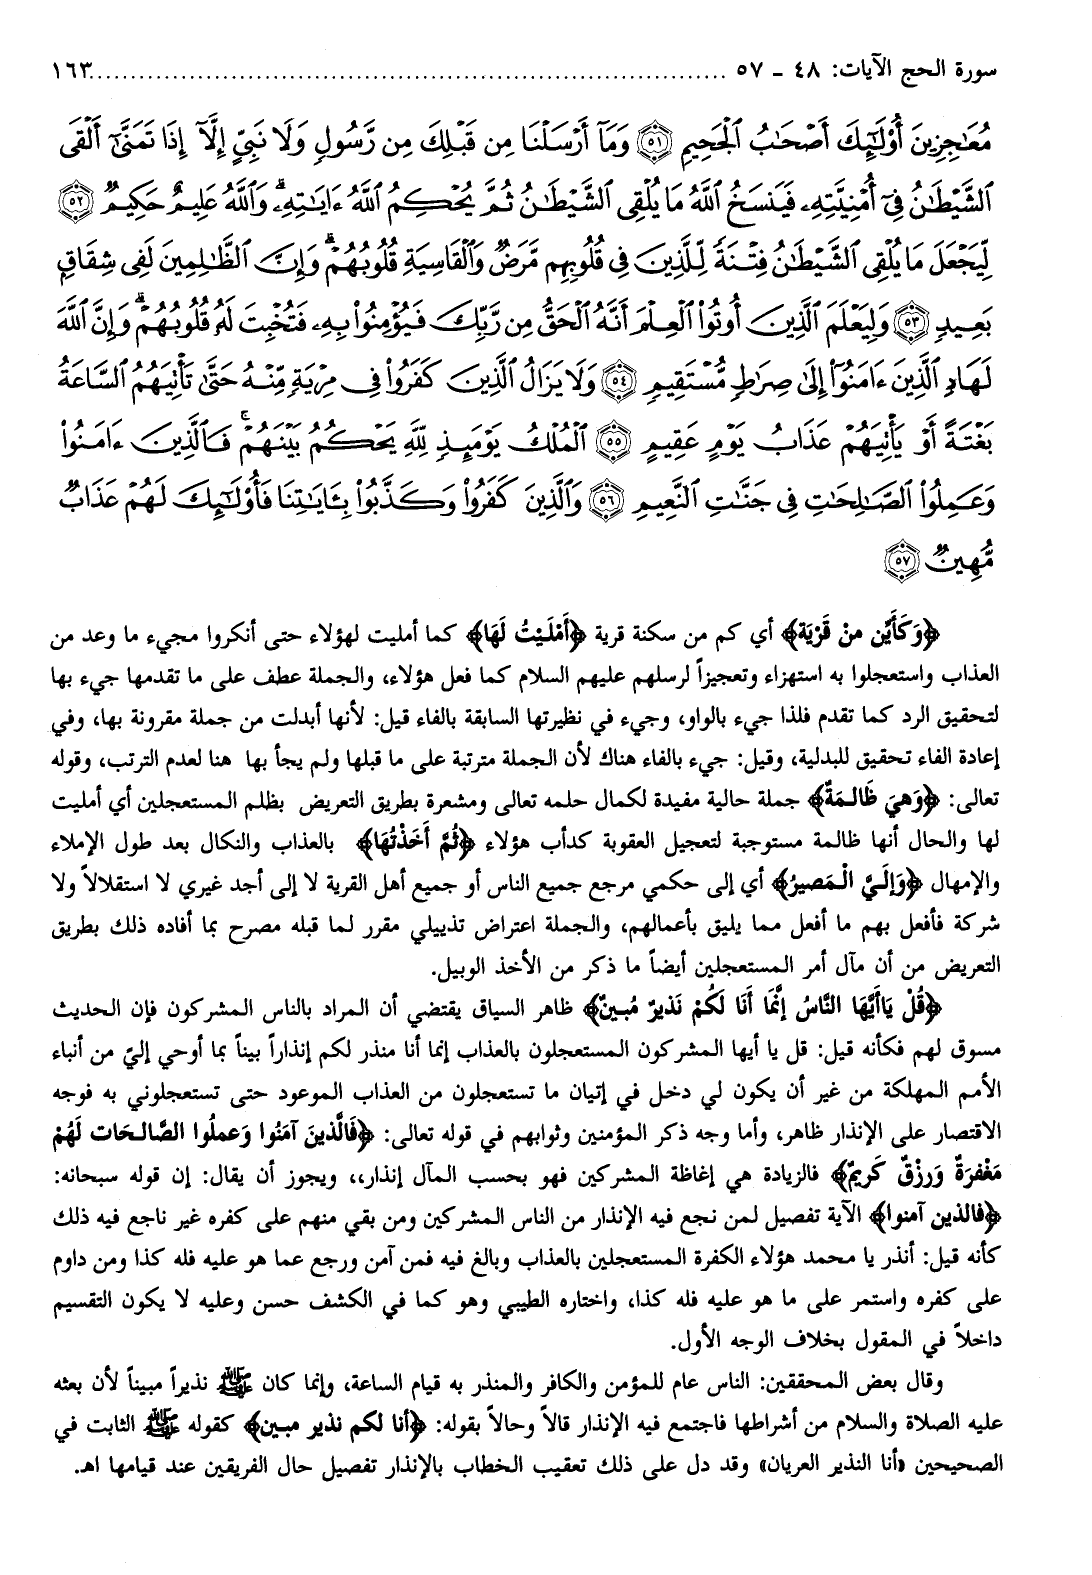 سورة الحج الآيات: ٤٨ ـ ٥٧ ............................................................ ١٦٣
مُعَـٰجِزِينَ أُوْلَـٰٓئِكَ أَصْحَـٰبُ ٱلْجَحِيمِ ﴿٥١﴾ وَمَآ أَرْسَلْنَا مِن قَبْلِكَ مِن رَّسُولٍ وَلَا نَبِىٍّ إِلَّآ إِذَا تَمَنَّىٰٓ أَلْقَى
ٱلشَّيْطَـٰنُ فِىٓ أُمْنِيَّتِهِۦ فَيَنسَخُ ٱللَّهُ مَا يُلْقِى ٱلشَّيْطَـٰنُ ثُمَّ يُحْكِمُ ٱللَّهُ ءَايَـٰتِهِۦ ۗ وَٱللَّهُ عَلِيمٌ حَكِيمٌ ﴿٥٢﴾
لِّيَجْعَلَ مَا يُلْقِى ٱلشَّيْطَـٰنُ فِتْنَةً لِّلَّذِينَ فِى قُلُوبِهِم مَّرَضٌ وَٱلْقَاسِيَةِ قُلُوبُهُمْ ۗ وَإِنَّ ٱلظَّـٰلِمِينَ لَفِى شِقَاقٍۭ
بَعِيدٍ ﴿٥٣﴾ وَلِيَعْلَمَ ٱلَّذِينَ أُوتُوا۟ ٱلْعِلْمَ أَنَّهُ ٱلْحَقُّ مِن رَّبِّكَ فَيُؤْمِنُوا۟ بِهِۦ فَتُخْبِتَ لَهُۥ قُلُوبُهُمْ ۗ وَإِنَّ ٱللَّهَ
لَهَادِ ٱلَّذِينَ ءَامَنُوٓا۟ إِلَىٰ صِرَٰطٍ مُّسْتَقِيمٍ ﴿٥٤﴾ وَلَا يَزَالُ ٱلَّذِينَ كَفَرُوا۟ فِى مِرْيَةٍ مِّنْهُ حَتَّىٰ تَأْتِيَهُمُ ٱلسَّاعَةُ
بَغْتَةً أَوْ يَأْتِيَهُمْ عَذَابُ يَوْمٍ عَقِيمٍ ﴿٥٥﴾ ٱلْمُلْكُ يَوْمَئِذٍ لِّلَّهِ يَحْكُمُ بَيْنَهُمْ ۚ فَٱلَّذِينَ ءَامَنُوا۟
وَعَمِلُوا۟ ٱلصَّـٰلِحَـٰتِ فِى جَنَّـٰتِ ٱلنَّعِيمِ ﴿٥٦﴾ وَٱلَّذِينَ كَفَرُوا۟ وَكَذَّبُوا۟ بِـَٔايَـٰتِنَا فَأُو۟لَـٰٓئِكَ لَهُمْ عَذَابٌ
مُّهِينٌ ﴿٥٧﴾
﴿وَكَأَيِّن مِنْ قَرْيَة﴾ أي كم من سكنة قرية ﴿أَمْلَيْتُ لَهَا﴾ كما أمليت لهؤلاء حتى أنكروا مجيء ما وعد من
العذاب واستعجلوا به استهزاء وتعجيزاً لرسلهم عليهم السلام كما فعل هؤلاء، والجملة عطف على ما تقدمها جيء بها
لتحقيق الرد كما تقدم فلذا جيء بالواو، وجيء في نظيرتها السابقة بالفاء قيل: لأنها أبدلت من جملة مقرونة بها، وفي
إعادة الفاء تحقيق للبدلية، وقيل: جيء بالفاء هناك لأن الجملة مترتبة على ما قبلها ولم يجأ بها هنا لعدم الترتب، وقوله
تعالى: ﴿وَهِيَ ظَالمَةٌ﴾ جملة حالية مفيدة لكمال حلمه تعالى ومشعرة بطريق التعريض بظلم المستعجلين أي أمليت
لها والحال أنها ظالمة مستوجبة لتعجيل العقوبة كدأب هؤلاء ﴿ثُمَّ أَخَذْتُهَا﴾ بالعذاب والنكال بعد طول الإملاء
والإمهال ﴿وَإِلَيَّ الْمَصيرُ﴾ أي إلى حكمي مرجع جميع الناس أو جميع أهل القرية لا إلى أجد غيري لا استقلالاً ولا
شركة فأفعل بهم ما أفعل مما يليق بأعمالهم، والجملة اعتراض تذييلي مقرر لما قبله مصرح بما أفاده ذلك بطريق
التعريض من أن مآل أمر المستعجلين أيضاً ما ذكر من الأخذ الوبيل.
﴿قُلْ يَاأَيُّهَا النَّاسُ إِنَّمَا أَنَا لَكُمْ نَذيرٌ مُبينٌ﴾ ظاهر السياق يقتضي أن المراد بالناس المشركون فإن الحديث
مسوق لهم فكأنه قيل: قل يا أيها المشركون المستعجلون بالعذاب إنما أنا منذر لكم إنذاراً بيناً بما أوحي إليّ من أنباء
الأمم المهلكة من غير أن يكون لي دخل في إتيان ما تستعجلون من العذاب الموعود حتى تستعجلوني به فوجه
الاقتصار على الإنذار ظاهر، وأما وجه ذكر المؤمنين وثوابهم في قوله تعالى: ﴿فَالَّذينَ آمَنُوا وَعملُوا الصَّالحَات لَهُمْ
مَغْفرَةٌ وَرزْقٌ كَريمٌ﴾ فالزيادة هي إغاظة المشركين فهو بحسب المآل إنذار،، ويجوز أن يقال: إن قوله سبحانه:
﴿فالذين آمنوا﴾ الآية تفصيل لمن نجع فيه الإنذار من الناس المشركين ومن بقي منهم على كفره غير ناجع فيه ذلك
كأنه قيل: أنذر يا محمد هؤلاء الكفرة المستعجلين بالعذاب وبالغ فيه فمن آمن ورجع عما هو عليه فله كذا ومن داوم
على كفره واستمر على ما هو عليه فله كذا، واختاره الطيبي وهو كما في الكشف حسن وعليه لا يكون التقسيم
داخلاً في المقول بخلاف الوجه الأول.
وقال بعض المحققين: الناس عام للمؤمن والكافر والمنذر به قيام الساعة، وإنما كان ﷺ نذيراً مبيناً لأن بعثه
عليه الصلاة والسلام من أشراطها فاجتمع فيه الإنذار قالاً وحالاً بقوله: ﴿أنا لكم نذير مبين﴾ كقوله ﷺ الثابت في
الصحيحين «أنا النذير العريان» وقد دل على ذلك تعقيب الخطاب بالإنذار تفصيل حال الفريقين عند قيامها اهـ.